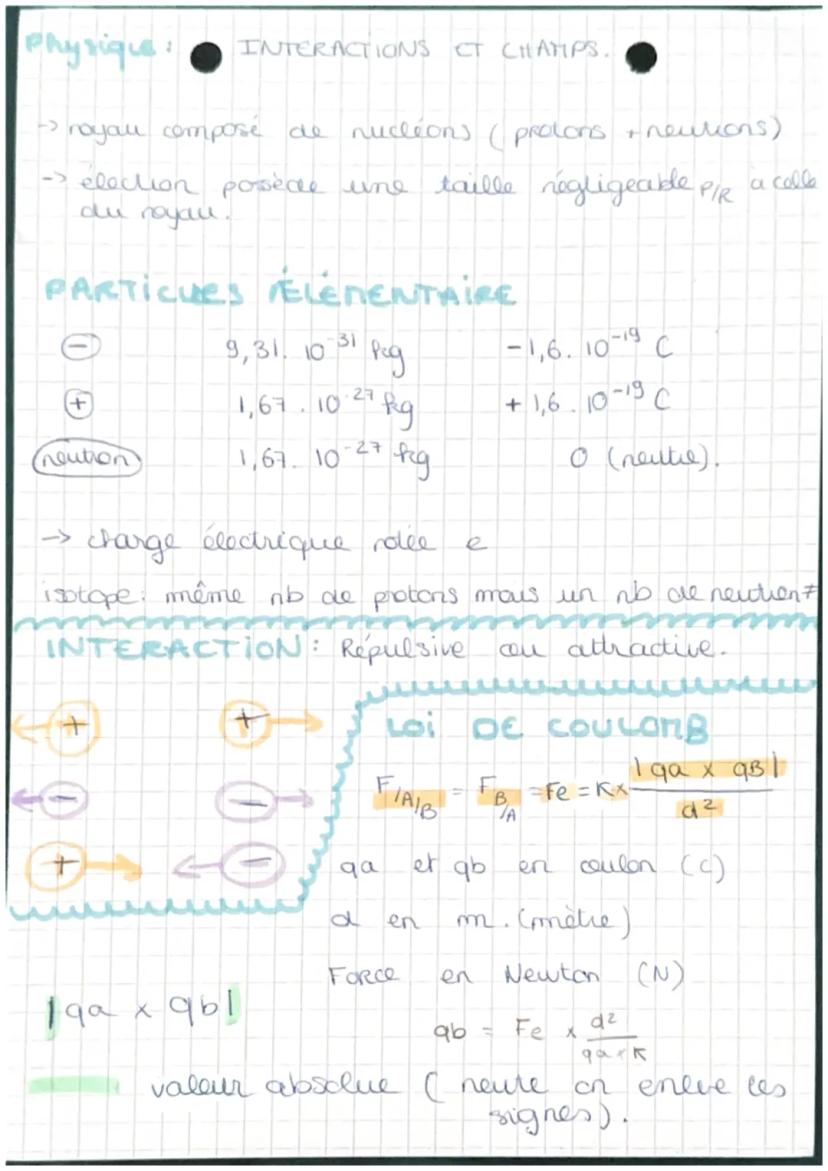 Physique : ● INTERACTIONS ET CHAMPS. ●
-> noyau composé de nucléons ( protons + neutrons)
-> électron possède une taille négligeable P/R à celle
du noyau.
PARTICULES ÉLÉMENTAIRE
- 9,31. 10^-31 kg -1,6. 10^-19 C
+ 1,67 . 10^-27 kg + 1,6 . 10^-19 C
neutron 1,67. 10^-27 kg 0 (neutre).
-> charge électrique notée e
isotope : même nb de protons mais un nb de neutron ≠
INTERACTION : Répulsive ou attractive.
+ +
- -
+ -
LOI DE COULOMB
F/A/B = F B/A = Fe = K x |qa x qB| / d²
qa et qb en coulon (C)
d en m. (mètre)
Force en Newton (N)
|qa x qb|
qb = Fe x d² / qa x K
valeur absolue ( neute on enleve les
signes).